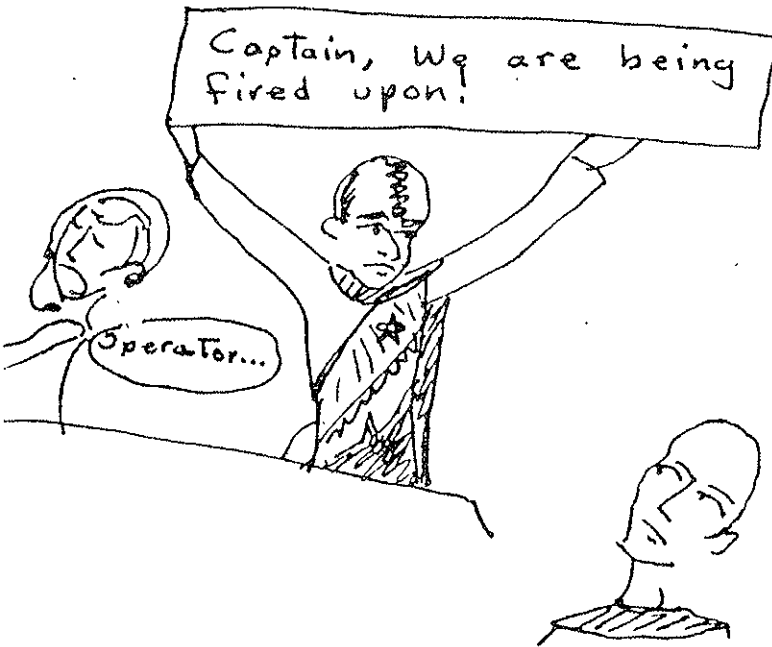 Captain, We are being
fired upon!
Operator...